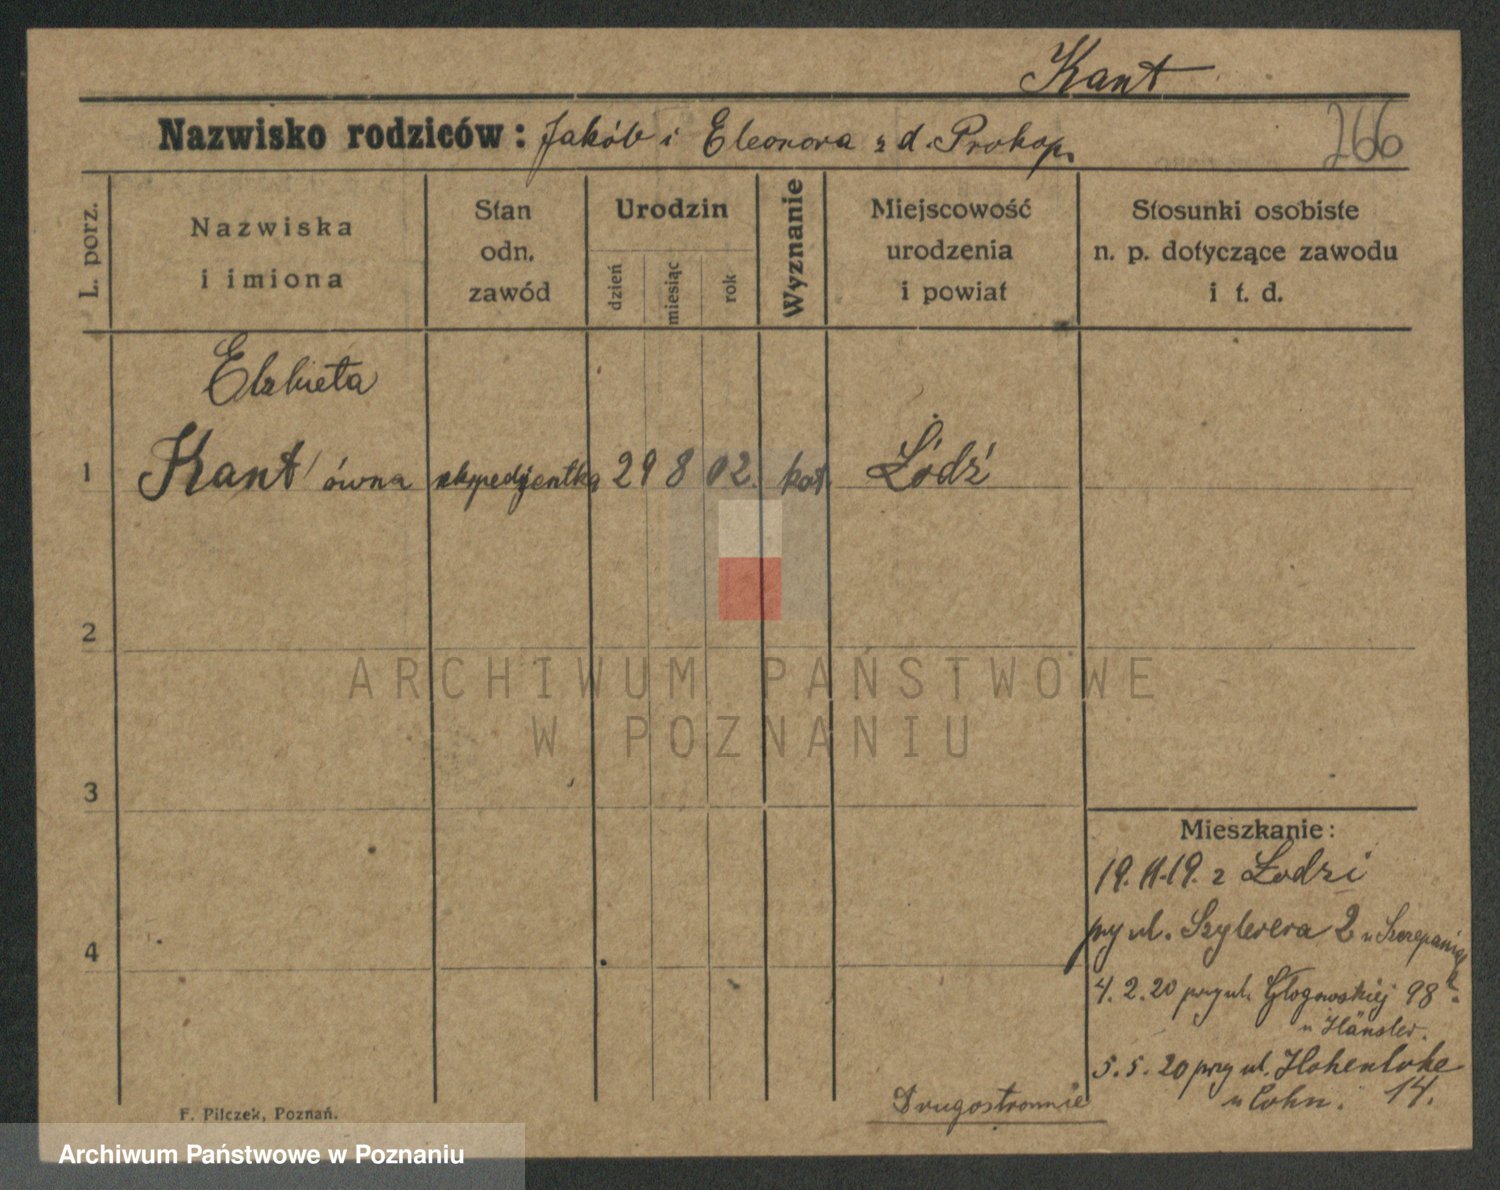 Kant
Nazwisko rodziców: Jakób i Eleonora z d. Prokop.
266
L. porz.
Nazwiska
i imiona
Stan
odn.
zawód
Urodzin
dzień
miesiąc
rok
Wyznanie
Miejscowość
urodzenia
i powiat
Stosunki osobiste
n. p. dotyczące zawodu
i t. d.
Elzbieta
1 Kant ówna ekspedjentka 29 8 02. kat. Łódź
2
3
4
ARCHIWUM PAŃSTWOWE
W POZNANIU
Mieszkanie:
19.11.19. z Łodzi
przy ul. Szylera 2 u Szczepaniak
4.2.20 przy ul. Głogowskiej 98
u Hänsler.
5.5.20 przy ul. Hohenlohe
u Cohn. 14.
Drugostronnie
F. Pilczek, Poznań.
Archiwum Państwowe w Poznaniu